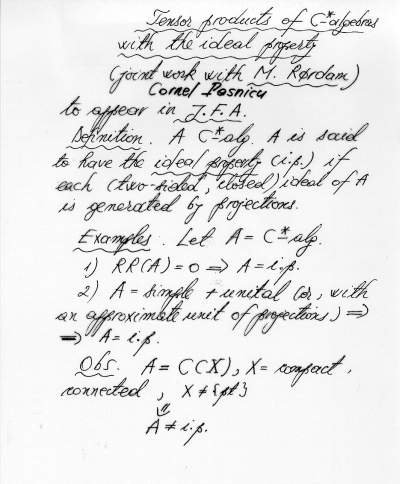 Tensor products of C*-algebras
with the ideal property
(joint work with M. Rørdam)
Cornel Pasnicu
to appear in J.F.A.
Definition. A C*-alg. A is said
to have the ideal property (i.p.) if
each (two-sided, closed) ideal of A
is generated by projections.
Examples. Let A = C*-alg.
1) RR(A)=0 ⇒ A = i.p.
2) A = simple + unital (or, with
an approximate unit of projections) ⇒
⇒ A = i.p.
Obs. A = C(X), X = compact,
connected, X ≠ {pt}
⇓
A ≠ i.p.